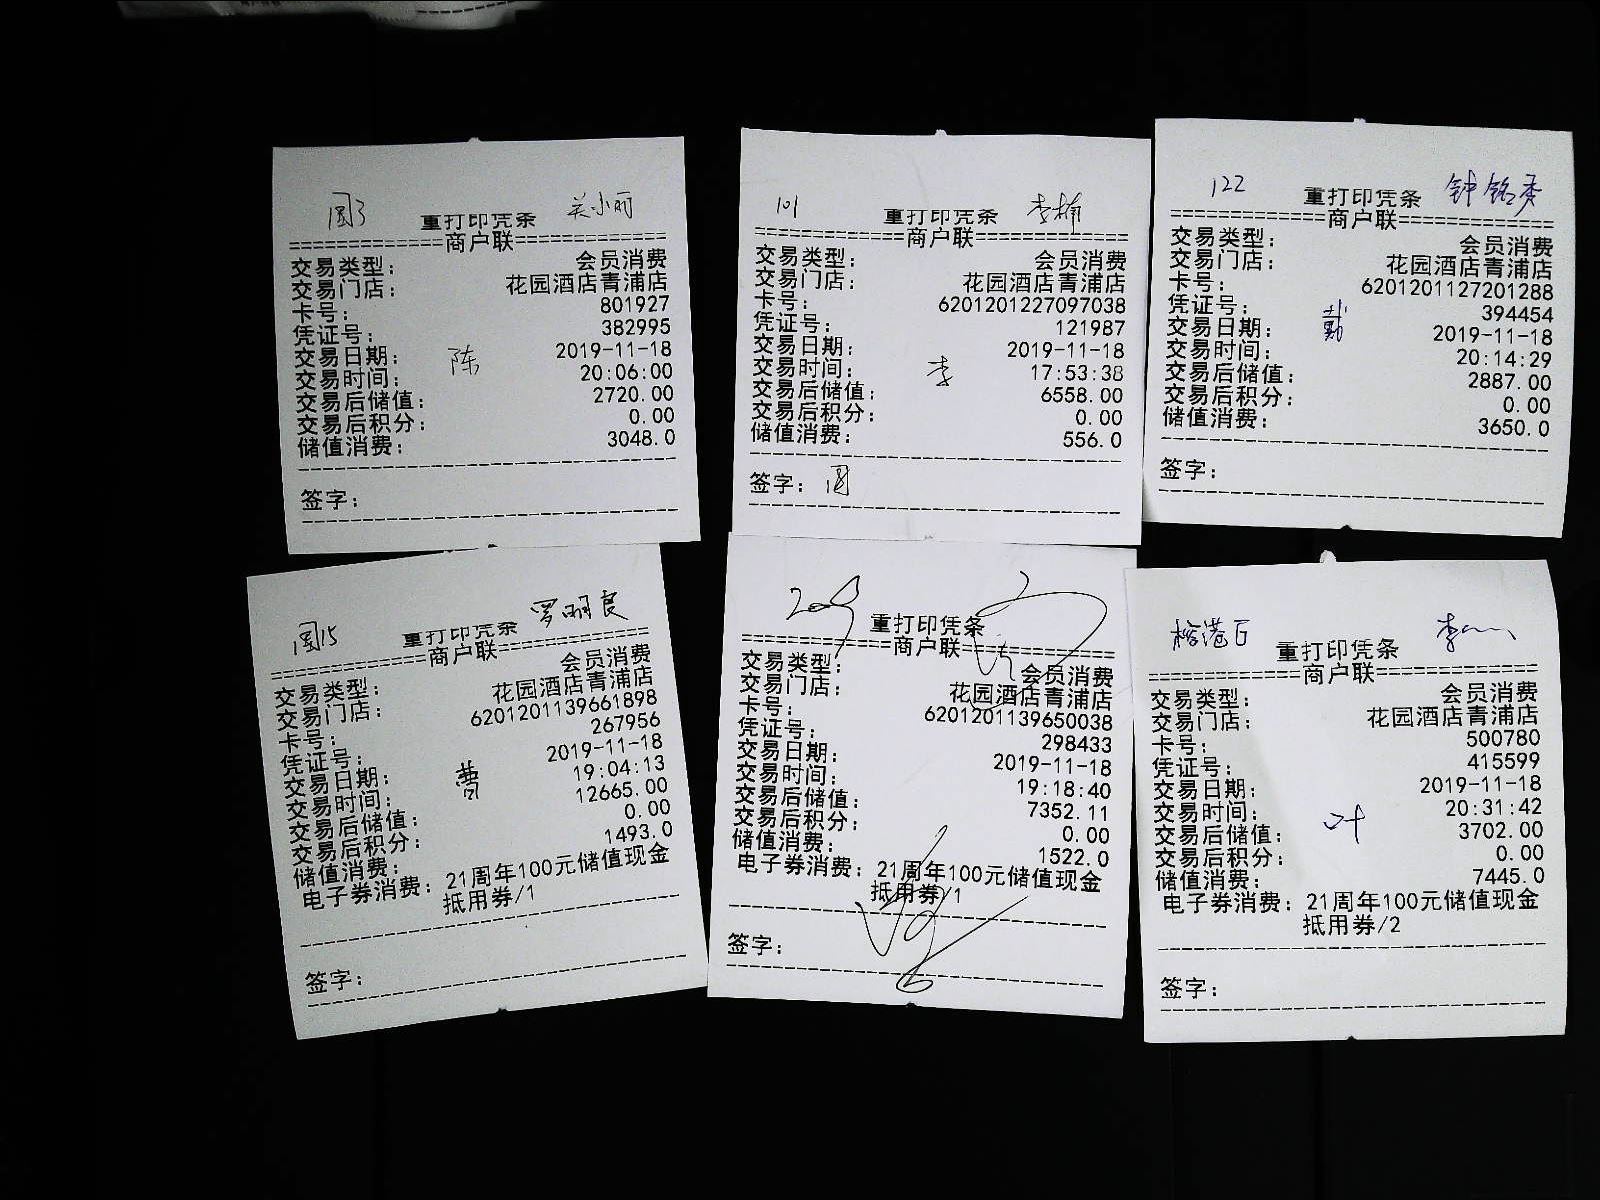 圆3 关小丽
重打印凭条
============商户联============
交易类型： 会员消费
交易门店： 花园酒店青浦店
卡号： 801927
凭证号： 382995
交易日期： 2019-11-18
陈
交易时间： 20:06:00
交易后储值： 2720.00
交易后积分： 0.00
储值消费： 3048.0
签字：
101 李楠
重打印凭条
============商户联============
交易类型： 会员消费
交易门店： 花园酒店青浦店
卡号： 6201201227097038
凭证号： 121987
交易日期： 2019-11-18
交易时间： 李 17:53:38
交易后储值： 6558.00
交易后积分： 0.00
储值消费： 556.0
签字： 圆
122 钟铭秀
重打印凭条
============商户联============
交易类型： 会员消费
交易门店： 花园酒店青浦店
卡号： 6201201127201288
凭证号： 394454
交易日期： 戴 2019-11-18
交易时间： 20:14:29
交易后储值： 2887.00
交易后积分： 0.00
储值消费： 3650.0
签字：
圆15 罗明良
重打印凭条
============商户联============
交易类型： 会员消费
交易门店： 花园酒店青浦店
卡号： 6201201139661898
凭证号： 267956
交易日期： 2019-11-18
交易时间： 曹 19:04:13
交易后储值： 12665.00
交易后积分： 0.00
储值消费： 1493.0
电子券消费： 21周年100元储值现金
抵用券/1
签字：
209
重打印凭条
============商户联============
交易类型： 会员消费
交易门店： 花园酒店青浦店
卡号： 6201201139650038
凭证号： 298433
交易日期： 2019-11-18
交易时间： 19:18:40
交易后储值： 7352.11
交易后积分： 0.00
储值消费： 1522.0
电子券消费： 21周年100元储值现金
抵用券/1
签字：
李
重打印凭条
============商户联============
交易类型： 会员消费
交易门店： 花园酒店青浦店
卡号： 500780
凭证号： 415599
交易日期： 2019-11-18
交易时间： 20:31:42
交易后储值： 叶 3702.00
交易后积分： 0.00
储值消费： 7445.0
电子券消费： 21周年100元储值现金
抵用券/2
签字：